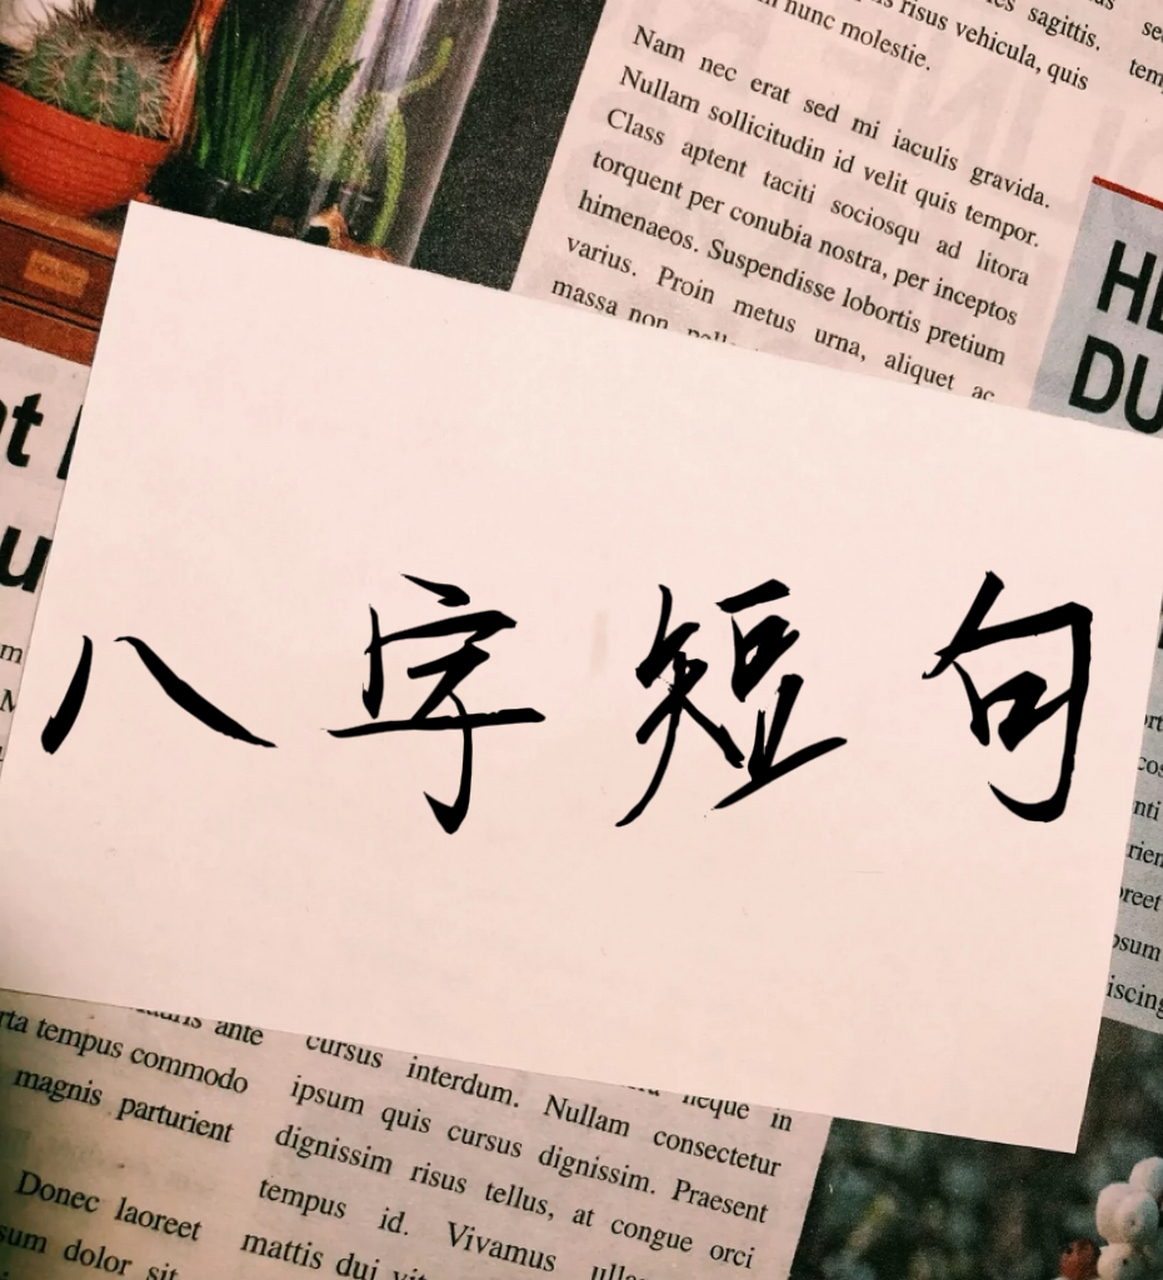 risus vehicula, quis
sagittis.
nunc molestie.
Nam nec erat sed mi iaculis gravida.
Nullam sollicitudin id velit quis tempor.
Class aptent taciti sociosqu ad litora
torquent per conubia nostra, per inceptos
himenaeos. Suspendisse lobortis pretium
varius. Proin metus urna, aliquet ac
massa non
DU
八字短句
ante
rta tempus commodo
magnis parturient
Donec laoreet
sum dolor sit
cursus interdum. Nullam consectetur
neque in
ipsum quis cursus dignissim. Praesent
dignissim risus tellus, at congue orci
tempus id. Vivamus
mattis dui